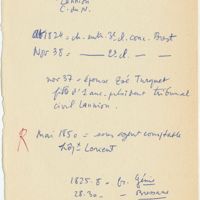 Lannion
C. du N.
1824 = ch. entr. 3e cl. conc. Brest
Nov 38 = —— 2e cl. —
nov 37 = épouse Zoé Turquet
fille d'1 anc. président tribunal
civil Lannion
R Mai 1850 = sous agent comptable
hôpt Lorient
1825-8 = Génie
28.30 —